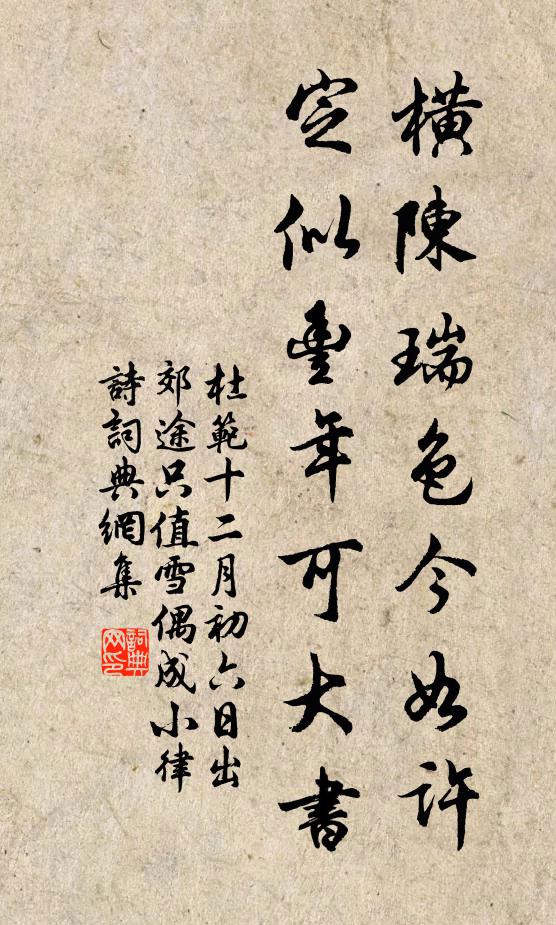 橫陳瑞色今如許
定似豐年可大書
杜範十二月初六日出
郊途只值雪偶成小律
詩詞典網集
詞典網印